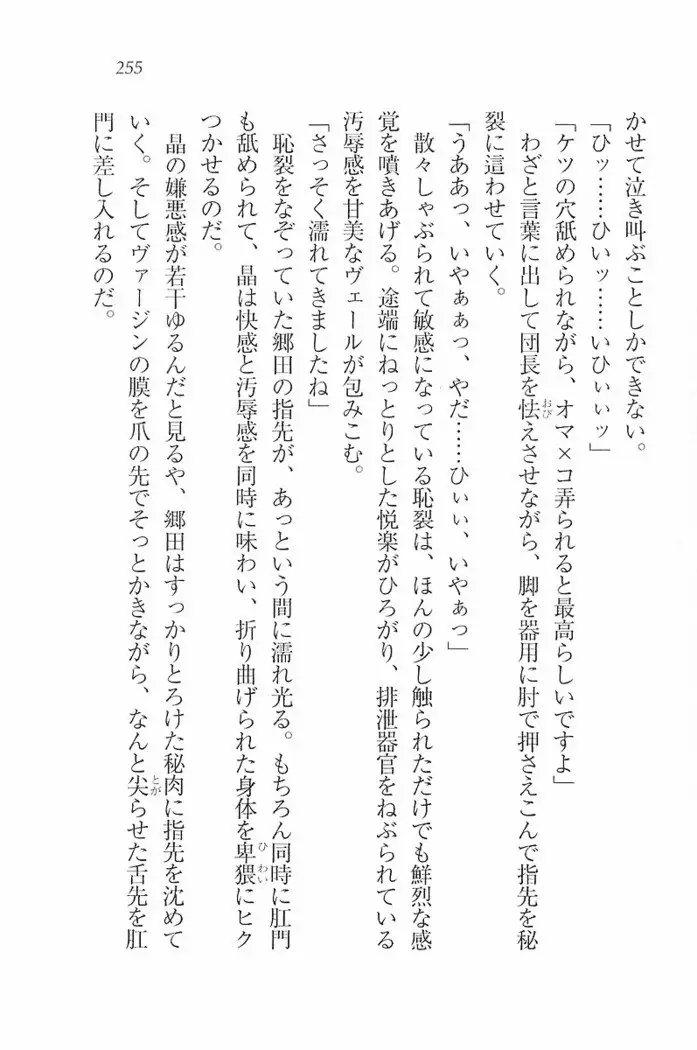 255
かせて泣き叫ぶことしかできない。
「ひッ……ひいッ……いひぃぃッ」
「ケツの穴舐められながら、オマ×コ弄られると最高らしいですよ」
わざと言葉に出して団長を怯えさせながら、脚を器用に肘で押さえこんで指先を秘
裂に這わせていく。
「うああっ、いやぁぁっ、やだ……ひぃぃ、いやぁっ」
散々しゃぶられて敏感になっている恥裂は、ほんの少し触られただけでも鮮烈な感
覚を噴きあげる。途端にねっとりとした悦楽がひろがり、排泄器官をねぶられている
汚辱感を甘美なヴェールが包みこむ。
「さっそく濡れてきましたね」
恥裂をなぞっていた郷田の指先が、あっという間に濡れ光る。もちろん同時に肛門
も舐められて、晶は快感と汚辱感を同時に味わい、折り曲げられた身体を卑猥にヒク
つかせるのだ。
晶の嫌悪感が若干ゆるんだと見るや、郷田はすっかりとろけた秘肉に指先を沈めて
いく。そしてヴァージンの膜を爪の先でそっとかきながら、なんと尖らせた舌先を肛
門に差し入れるのだ。